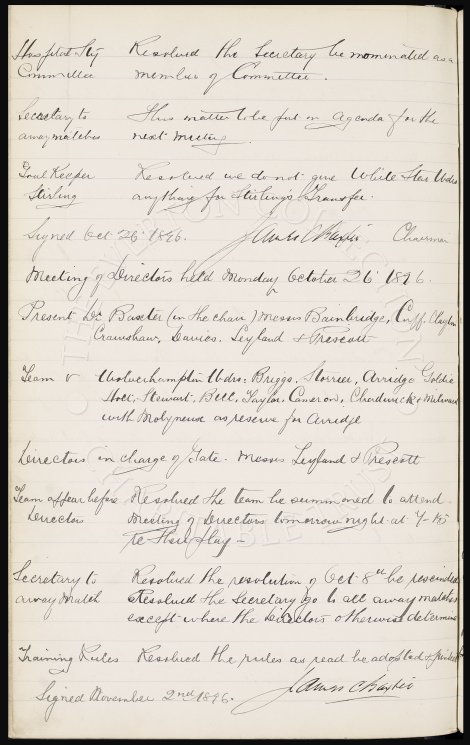 Hospital Sty Resolved the Secretary be nominated as a
Committee member of Committee.
Secretary to This matter to be put on Agenda for the
away matches next meeting.
Goal Keeper Resolved we do not give White Star Wdrs
Stirling anything for Stirling's Transfer.
Signed Oct 26th 1896. James C Baxter Chairman
Meeting of Directors held Monday October 26th 1896.
Present Dr Baxter (in the chair) Messrs Bainbridge, Cuff, Clayton
Crawshaw, Davies, Leyland & Prescott
Team v Wolverhampton Wdrs: Briggs, Storrier, Arridge, Goldie
Holt, Stewart, Bell, Taylor, Cameron, Chadwick & Milward
with Molyneux as reserve for Arridge
Directors in charge of Gate - Messrs Leyland & Prescott
Team appear before Resolved the team be summoned to attend
Directors meeting of Directors tomorrow night at 7-15
re their play -
Secretary to Resolved the resolution of Oct 8th be rescinded
away match Resolved the Secretary go to all away matches
except where the Directors otherwise determine
Training Rules Resolved the rules as read be adopted & printed
Signed November 2nd 1896. James C Baxter